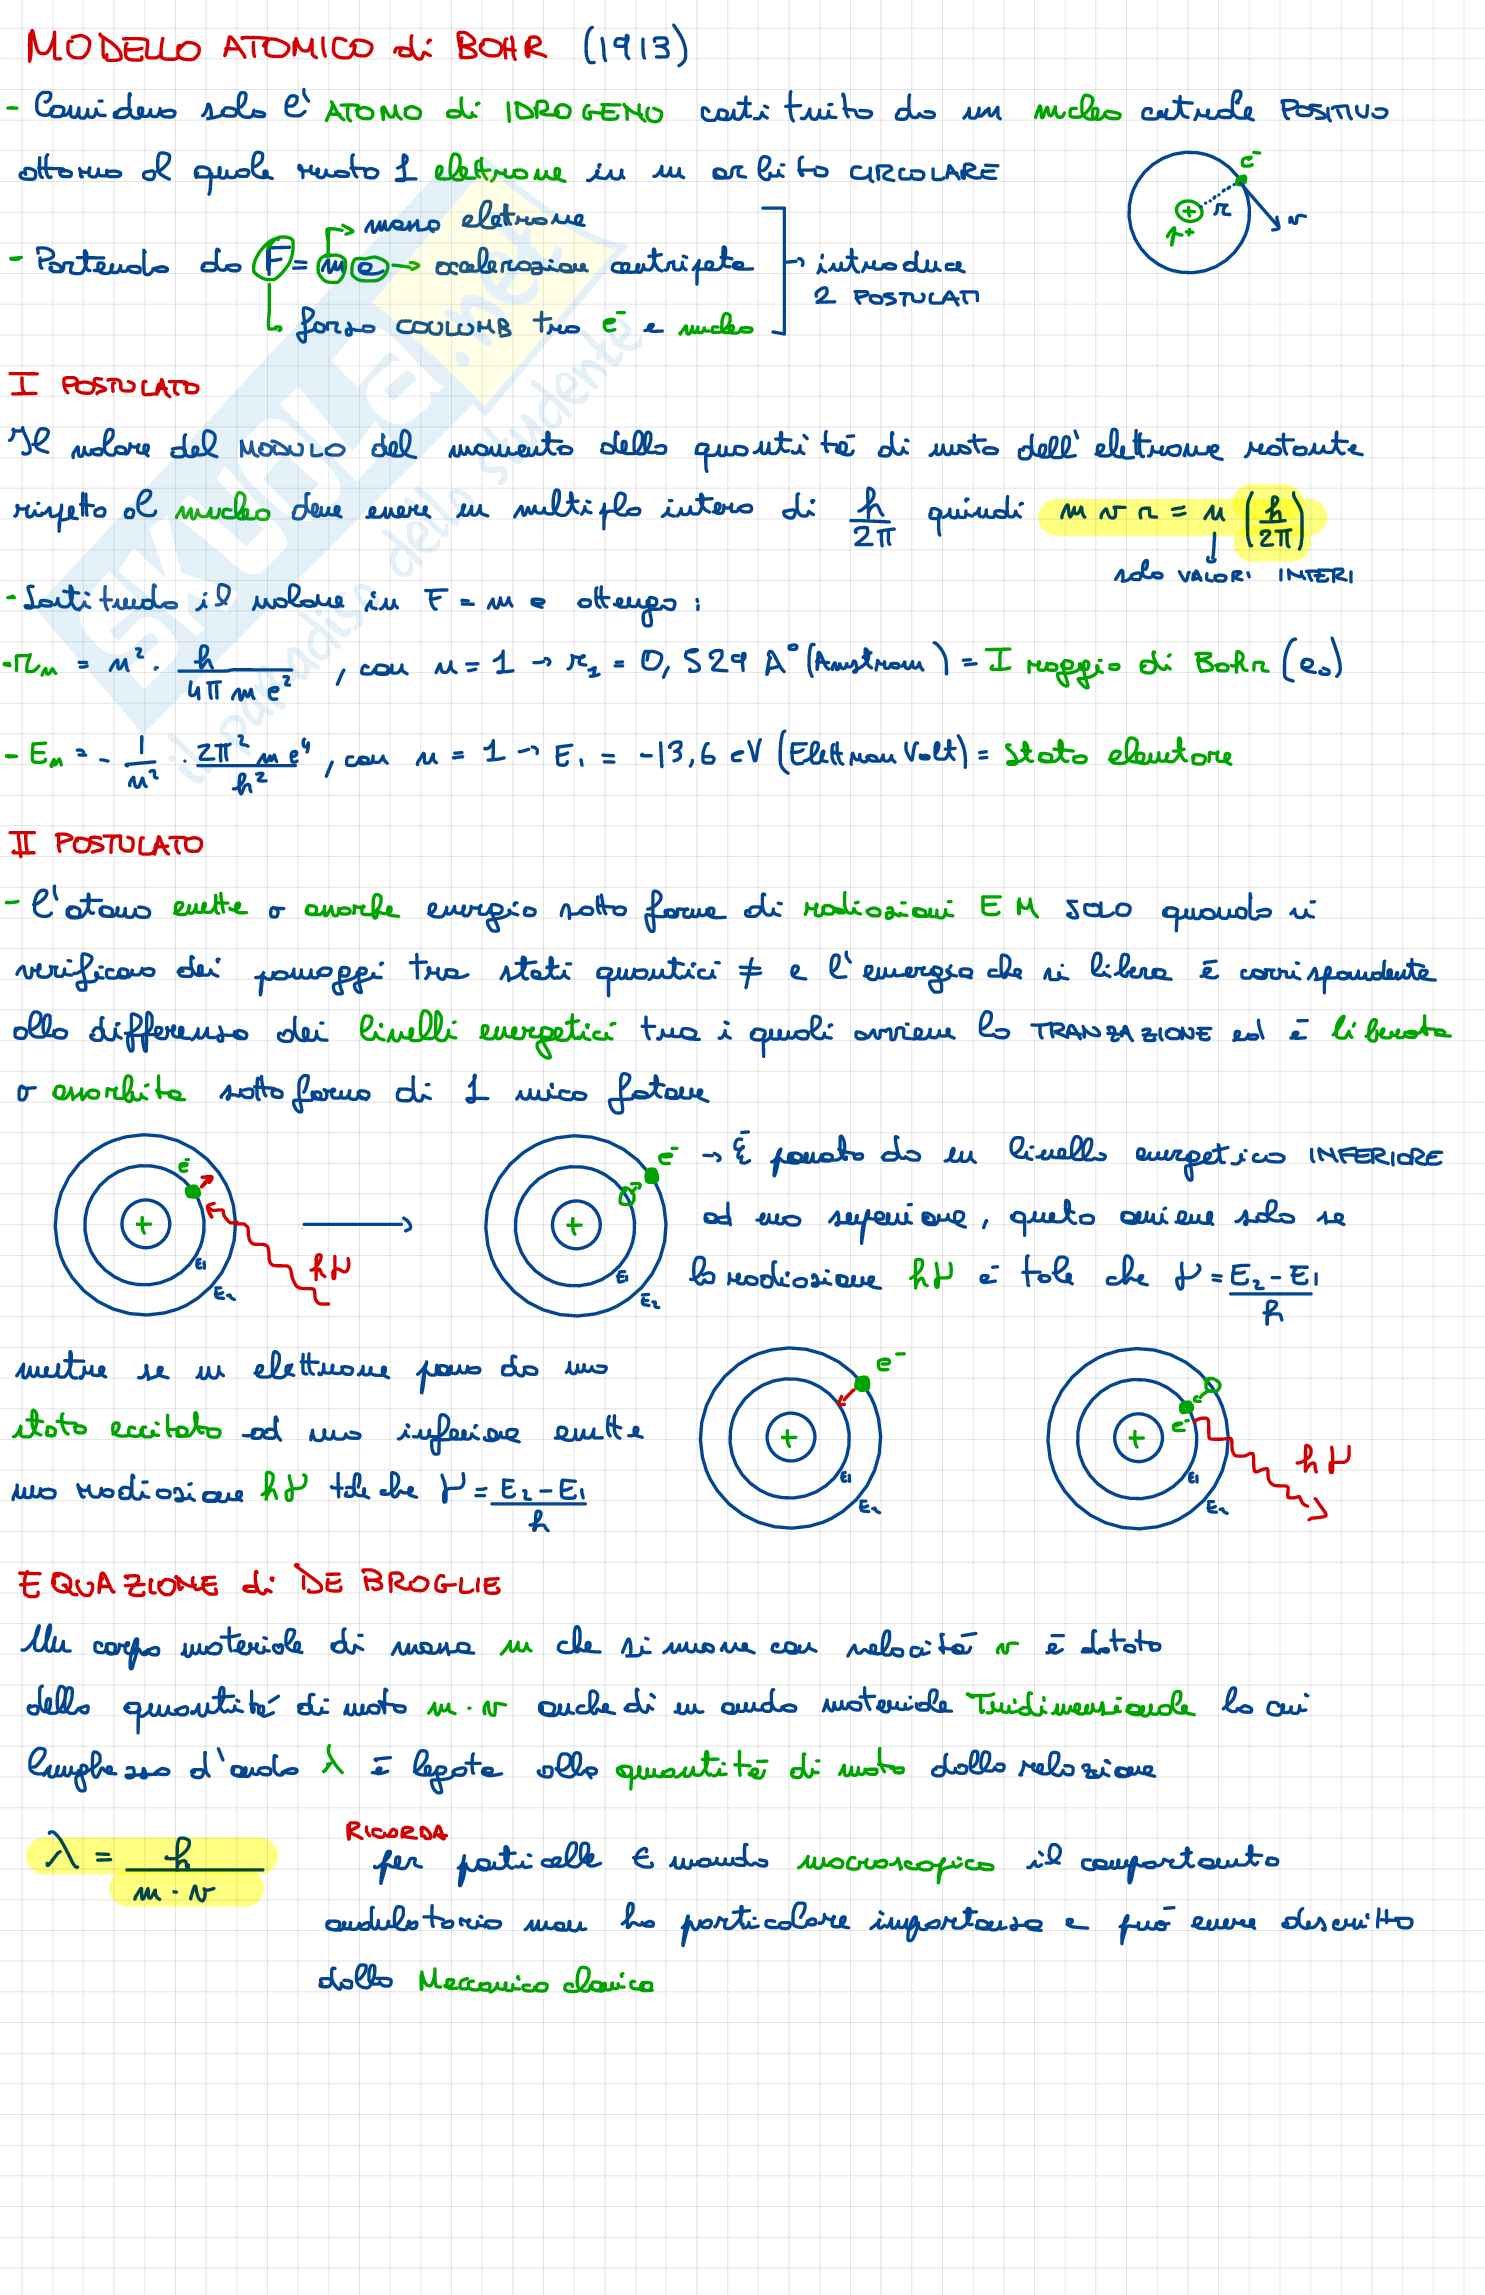 MODELLO ATOMICO di BOHR (1913)
- Considero solo l'ATOMO di IDROGENO costituito da un nucleo centrale POSITIVO
attorno al quale ruota 1 elettrone in un orbita CIRCOLARE
e-
r
v
p+
+
→ massa elettrone
- Partendo da F = m a → accelerazione centripeta → introduce
2 POSTULATI
↳ forza COULUMB tra e- e nucleo
I POSTULATO
Il valore del MODULO del momento della quantità di moto dell'elettrone rotante
rispetto al nucleo deve essere un multiplo intero di h/2π quindi m v r = n (h/2π)
↓ solo VALORI INTERI
- Sostituendo il valore in F = m a ottengo:
- rn = n² · h/4π m e², con n = 1 → r1 = 0,529 A° (Amstrom) = I raggio di Bohr (a0)
- En = - 1/n² · 2π² m e⁴/h², con n = 1 → E1 = -13,6 eV (Elettron Volt) = Stato elementare
II POSTULATO
- L'atomo emette o assorbe energia sotto forma di radiazioni EM SOLO quando si
verificano dei passaggi tra stati quantici ≠ e l'energia che si libera è corrispondente
alla differenza dei livelli energetici tra i quali avviene la TRANZAZIONE ed è liberata
o assorbita sotto forma di 1 unico fotone
e-
+
E1
E2
hν
→
e-
+
E1
E2
→ È passato da un livello energetico INFERIORE
ad uno superiore, questo avviene solo se
la radiazione hν è tale che ν = E2 - E1/h
mentre se un elettrone passa da uno
stato eccitato ad uno inferiore emette
una radiazione hν tale che ν = E2 - E1/h
e-
+
E1
E2
e-
+
E1
E2
hν
EQUAZIONE di DE BROGLIE
Un corpo materiale di massa m che si muove con velocità v è dotato
della quantità di moto m · v anche di un onda materiale Tridimensionale la cui
lunghezza d'onda λ è legata alla quantità di moto dalla relazione
λ = h/m · v
RICORDA
per particelle ∈ mondo macroscopico il comportamento
ondulatorio non ha particolare importanza e può essere descritto
dalla Meccanica classica
SKUOLA.net
il paradiso dello studente